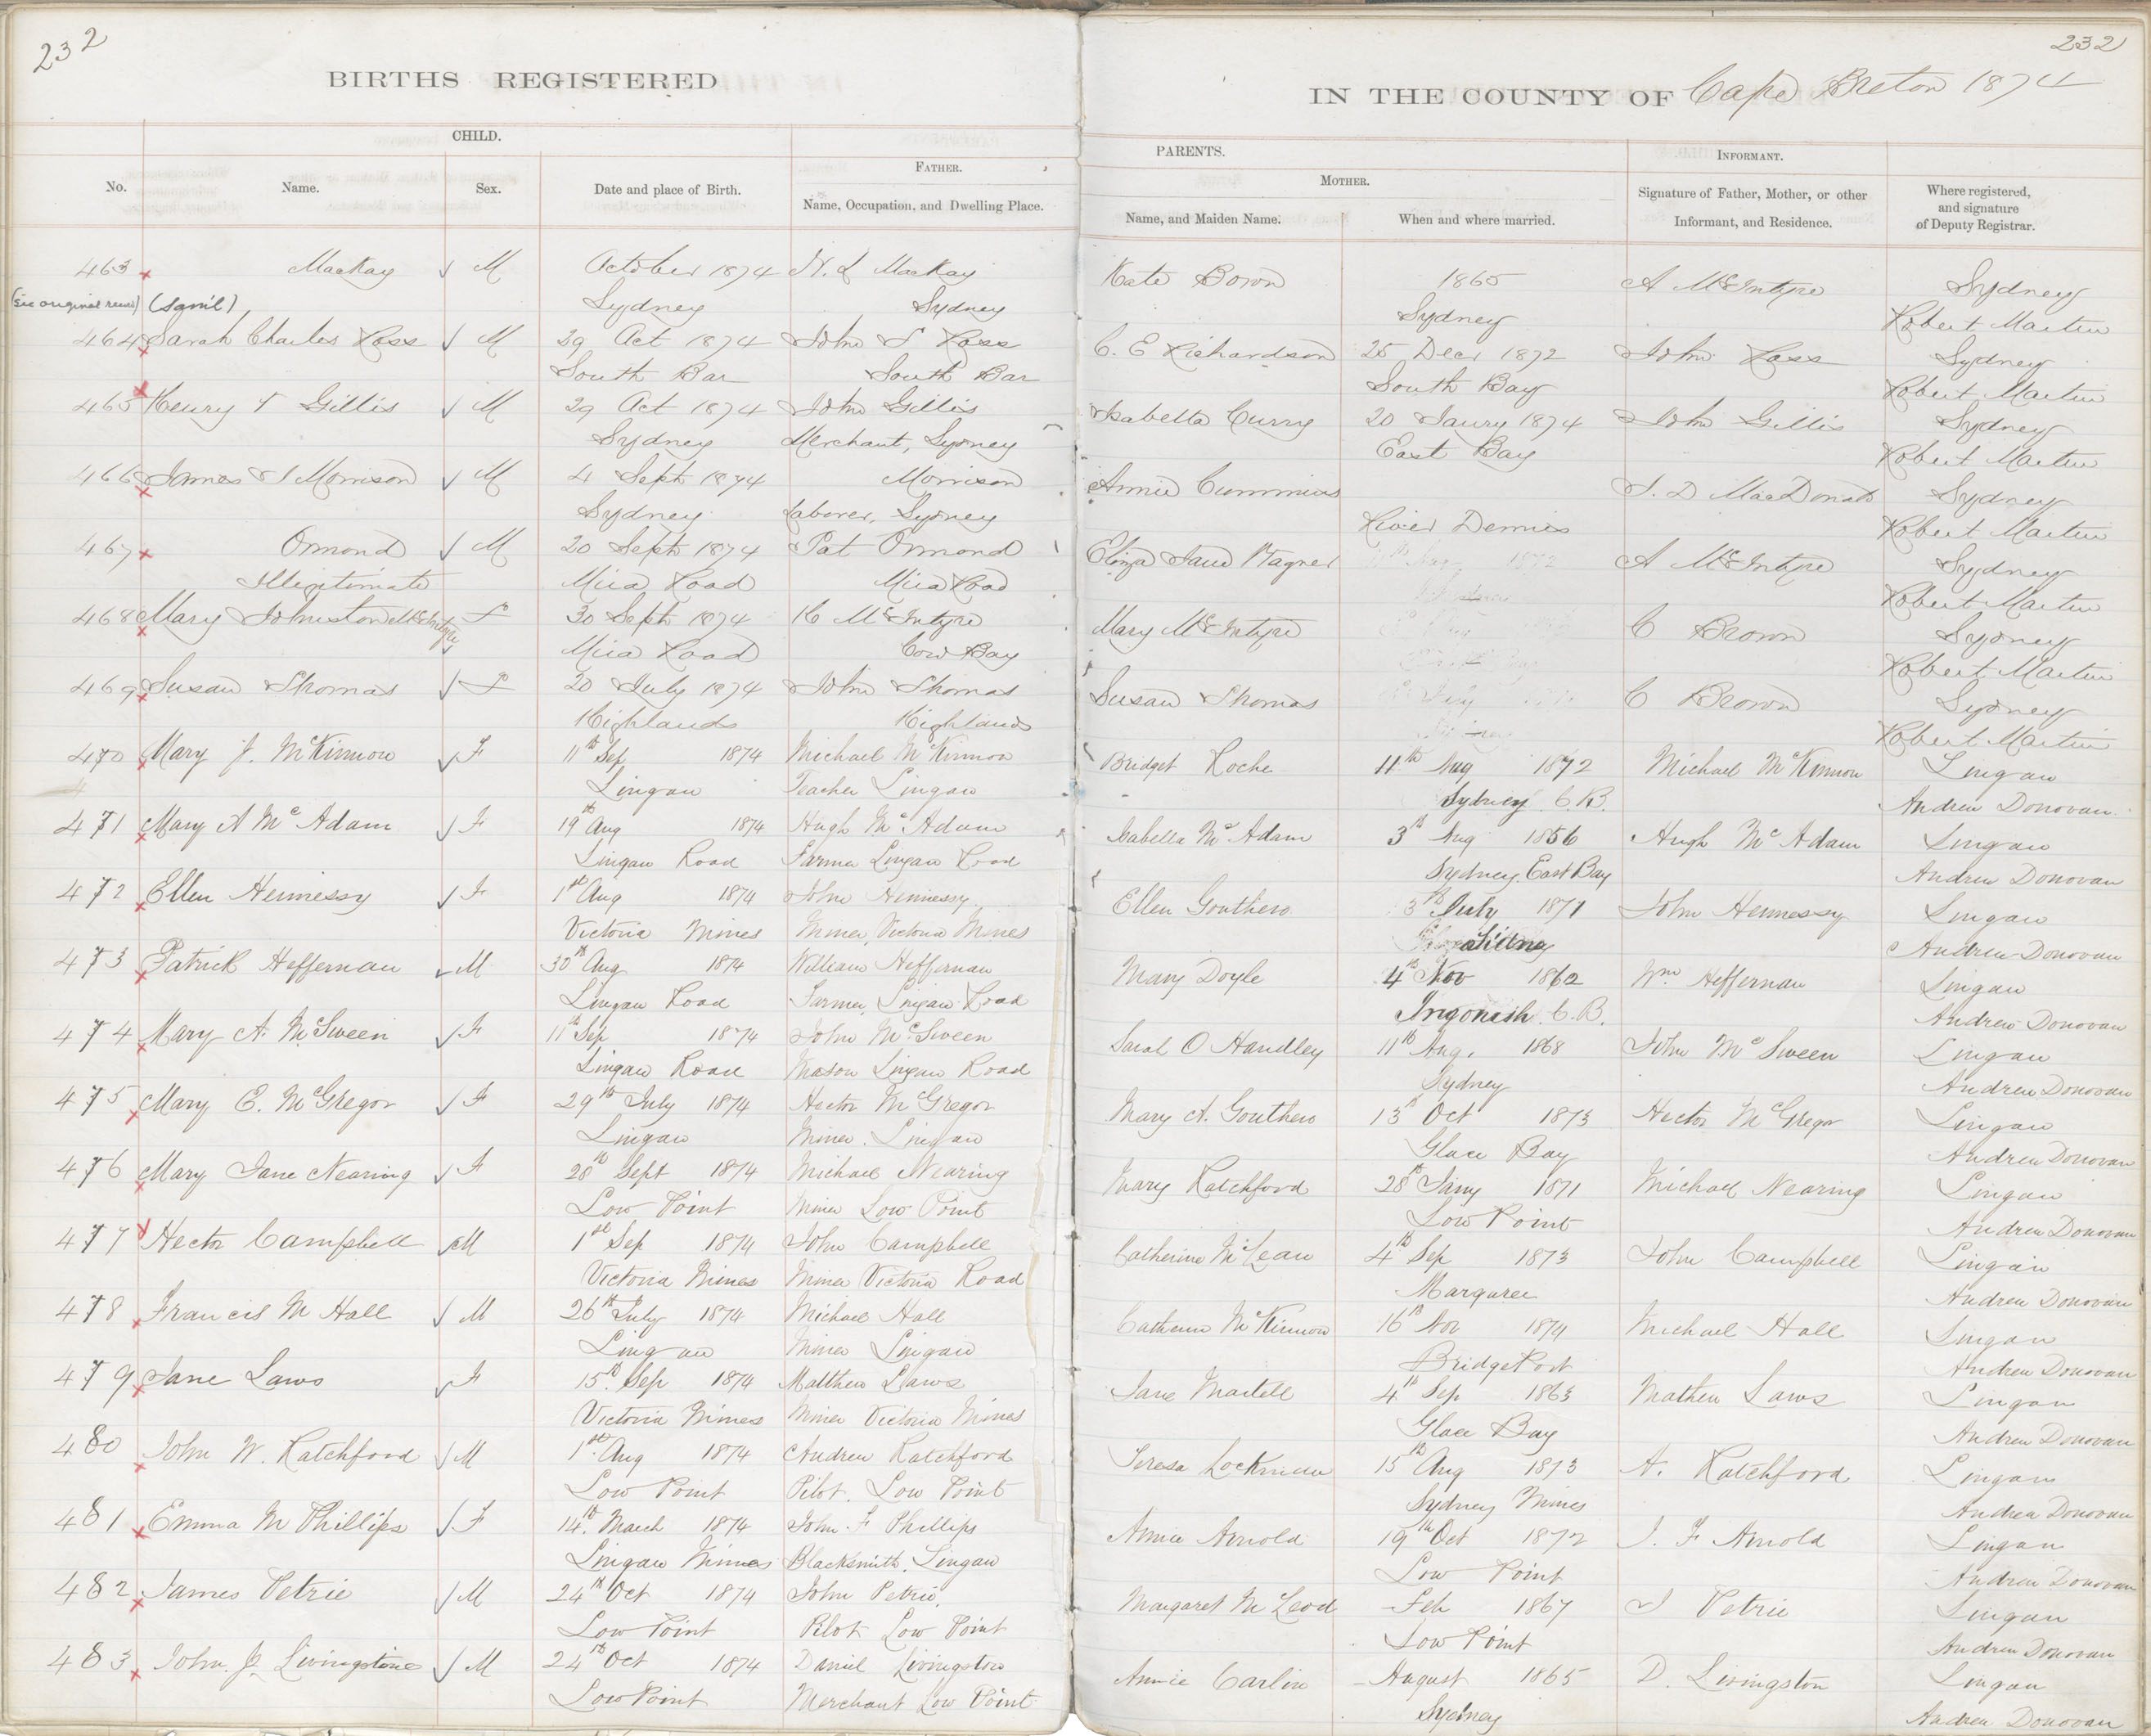 232
BIRTHS REGISTERED
CHILD.
No.
Name.
Sex.
Date and place of Birth.
FATHER.
Name, Occupation, and Dwelling Place.
463 MacKay M October 1874 N. L MacKay
(see original record) (Saml) Sydney Sydney
464 Sarah Charles Ross M 29 Oct 1874 John S Ross
South Bar South Bar
465 Henry T Gillis M 29 Oct 1874 John Gillis
Sydney Merchant, Sydney
466 James S Morrison M 4 Sept 1874 Morrison
Sydney Laborer, Sydney
467 Ormond M 20 Sept 1874 Pat Ormond
Illegitimate Mira Road Mira Road
468 Mary Johnston McIntyre F 30 Sept 1874 McIntyre
Mira Road Cow Bay
469 Susan Thomas F 20 July 1874 John Thomas
Highlands Highlands
470 Mary J. McKinnon F 11th Sep 1874 Michael McKinnon
Lingan Teacher Lingan
471 Mary A McAdam F 19th Aug 1874 Hugh McAdam
Lingan Road Farmer Lingan Road
472 Ellen Hennessy F 1st Aug 1874 John Hennessy
Victoria Mines Miner, Victoria Mines
473 Patrick Heffernan M 30th Aug 1874 William Heffernan
Lingan Road Farmer, Lingan Road
474 Mary A. McSween F 11th Sep 1874 John McSween
Lingan Road Mason Lingan Road
475 Mary C. McGregor F 29th July 1874 Hector McGregor
Lingan Miner. Lingan
476 Mary Jane Nearing F 28th Sept 1874 Michael Nearing
Low Point Miner Low Point
477 Hector Campbell M 1st Sep 1874 John Campbell
Victoria Mines Miner Victoria Road
478 Francis M Hall M 26th July 1874 Michael Hall
Lingan Miner Lingan
479 Jane Laws F 15th Sep 1874 Matthew Laws
Victoria Mines Miner Victoria Mines
480 John W. Ratchford M 1st Aug 1874 Andrew Ratchford
Low Point Pilot. Low Point
481 Emma M Phillips F 14th March 1874 John F Phillips
Lingan Mines Blacksmith, Lingan
482 James Petrie M 24th Oct 1874 John Petrie,
Low Point Pilot Low Point
483 John J. Livingstone M 24th Oct 1874 Daniel Livingston
Low Point Merchant Low Point
232
IN THE COUNTY OF Cape Breton 1874
PARENTS.
MOTHER.
Name, and Maiden Name.
When and where married.
INFORMANT.
Signature of Father, Mother, or other
Informant, and Residence.
Where registered,
and signature
of Deputy Registrar.
Kate Bown 1865 A McIntyre Sydney
Sydney Robert Martin
C. E Richardson 25 Decr 1872 John Ross Sydney
South Bay Robert Martin
Isabella Curry 20 Jaury 1874 John Gillis Sydney
East Bay Robert Martin
Annie Cummins S. D MacDonald Sydney
River Dennis Robert Martin
Eliza Jane Wagner A McIntyre Sydney
Robert Martin
Mary McIntyre C Brown Sydney
Robert Martin
Susan Thomas C Brown Sydney
Robert Martin
Bridget Roche 11th Aug 1872 Michael McKinnon Lingan
Sydney C.B. Andrew Donovan
Isabella McAdam 3th Aug 1856 Hugh McAdam Lingan
Sydney. East Bay Andrew Donovan
Ellen Gouthero 3th July 1871 John Hennessy Lingan
Sidney Andrew Donovan
Mary Doyle 4th Nov 1862 Wm Heffernan Lingan
Ingonish C.B. Andrew Donovan
Sarah O Handley 11th Aug. 1868 John McSween Lingan
Sydney Andrew Donovan
Mary A. Gouthero 13th Oct 1873 Hector McGregor Lingan
Glace Bay Andrew Donovan
Mary Ratchford 28th Jany 1871 Michael Nearing Lingan
Low Point Andrew Donovan
Catherine McLean 4th Sep 1873 John Campbell Lingan
Margaree Andrew Donovan
Catherine McKinnon 16th Nov 1874 Michael Hall Lingan
Bridgeport Andrew Donovan
Jane Martell 4th Sep 1863 Mathew Laws Lingan
Glace Bay Andrew Donovan
Teresa Lockman 15th Aug 1873 A. Ratchford Lingan
Sydney Mines Andrew Donovan
Annie Arnold 19th Oct 1872 J. F Arnold Lingan
Low Point Andrew Donovan
Margaret McLeod Feb 1867 J Petrie Lingan
Low Point Andrew Donovan
Annie Carlin August 1865 D. Livingston Lingan
Sydney Andrew Donovan